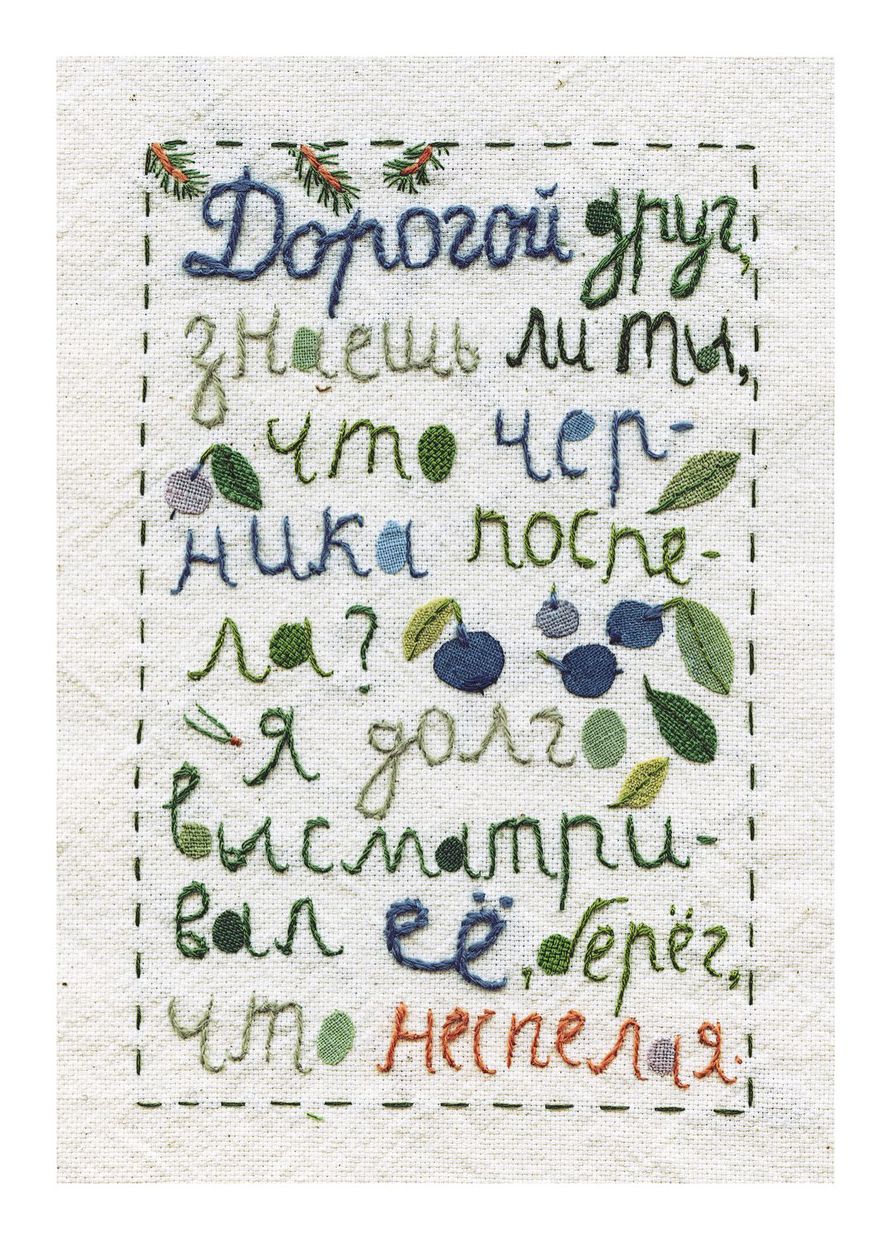 Дорогой друг,
знаешь ли ты,
что чер-
ника поспе-
ла?
Я долго
высматри-
вал её, берёг,
что неспелая.